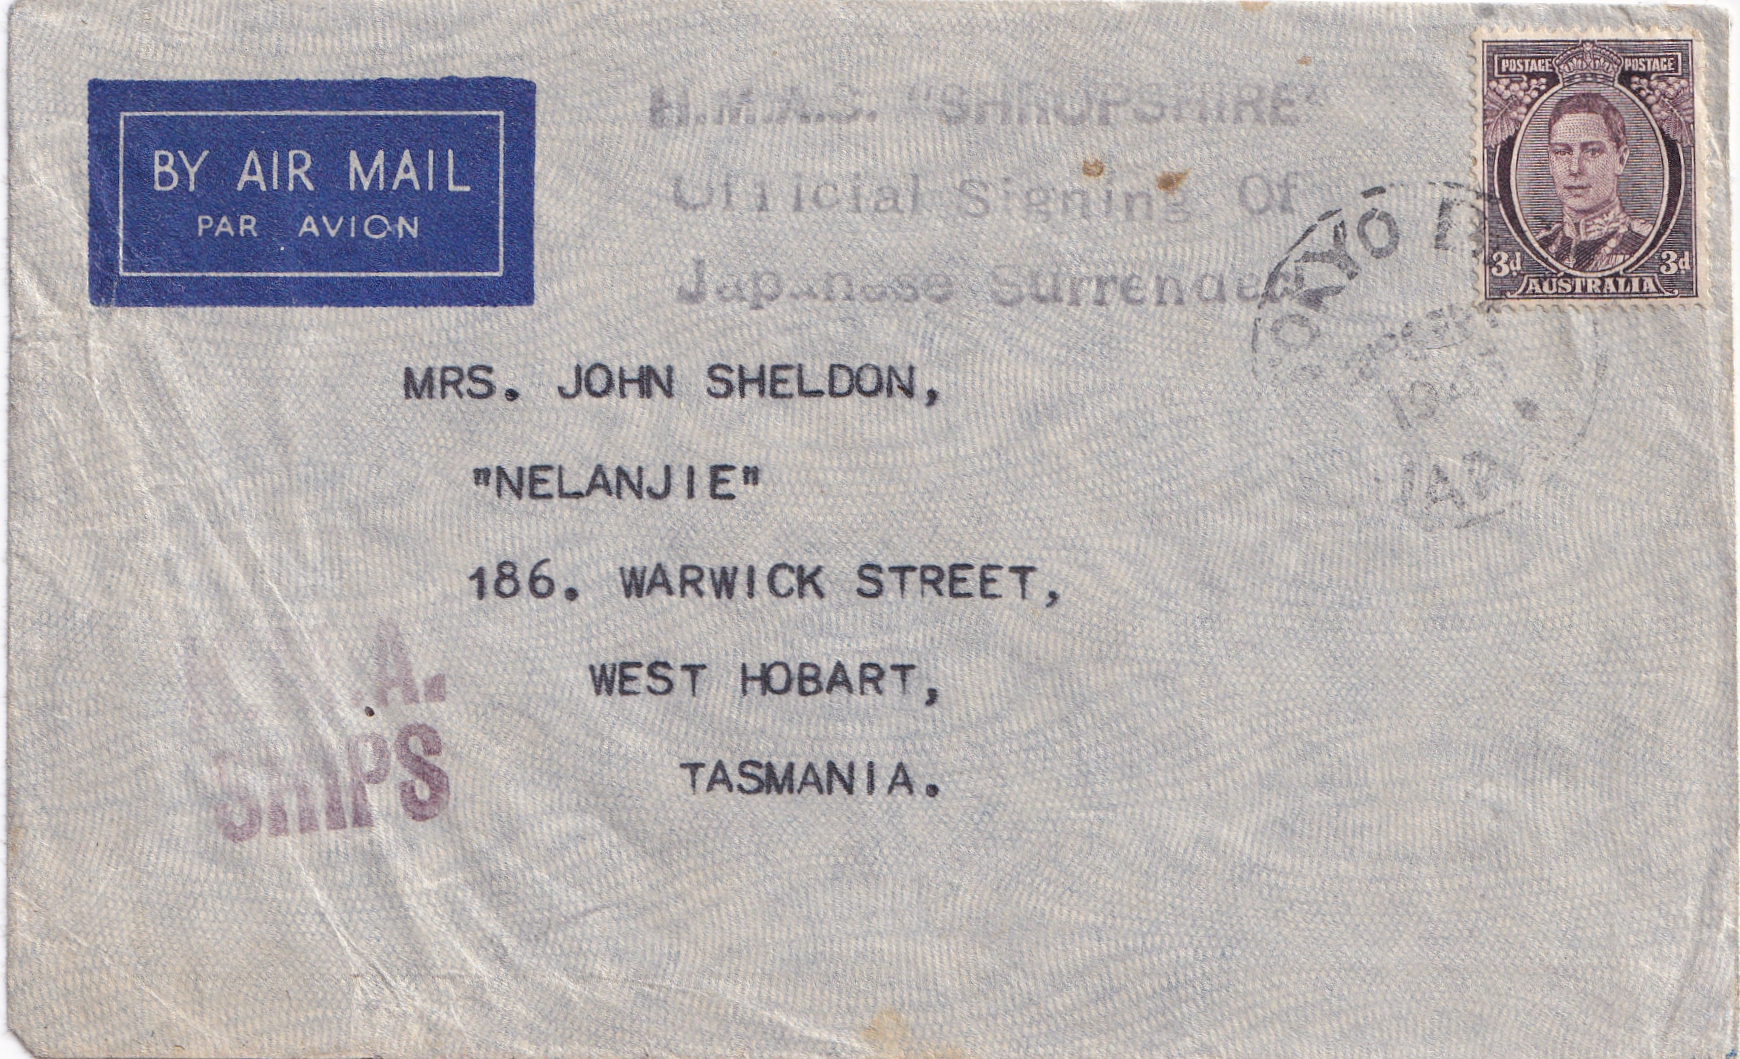 BY AIR MAIL
PAR AVION
H.M.A.S. "SHROPSHIRE"
Official Signing Of
Japanese Surrender
POSTAGE POSTAGE
3d 3d
AUSTRALIA
TOKYO
SEPT
1945
MRS. JOHN SHELDON,
"NELANJIE"
186. WARWICK STREET,
WEST HOBART,
TASMANIA.
SHIPS